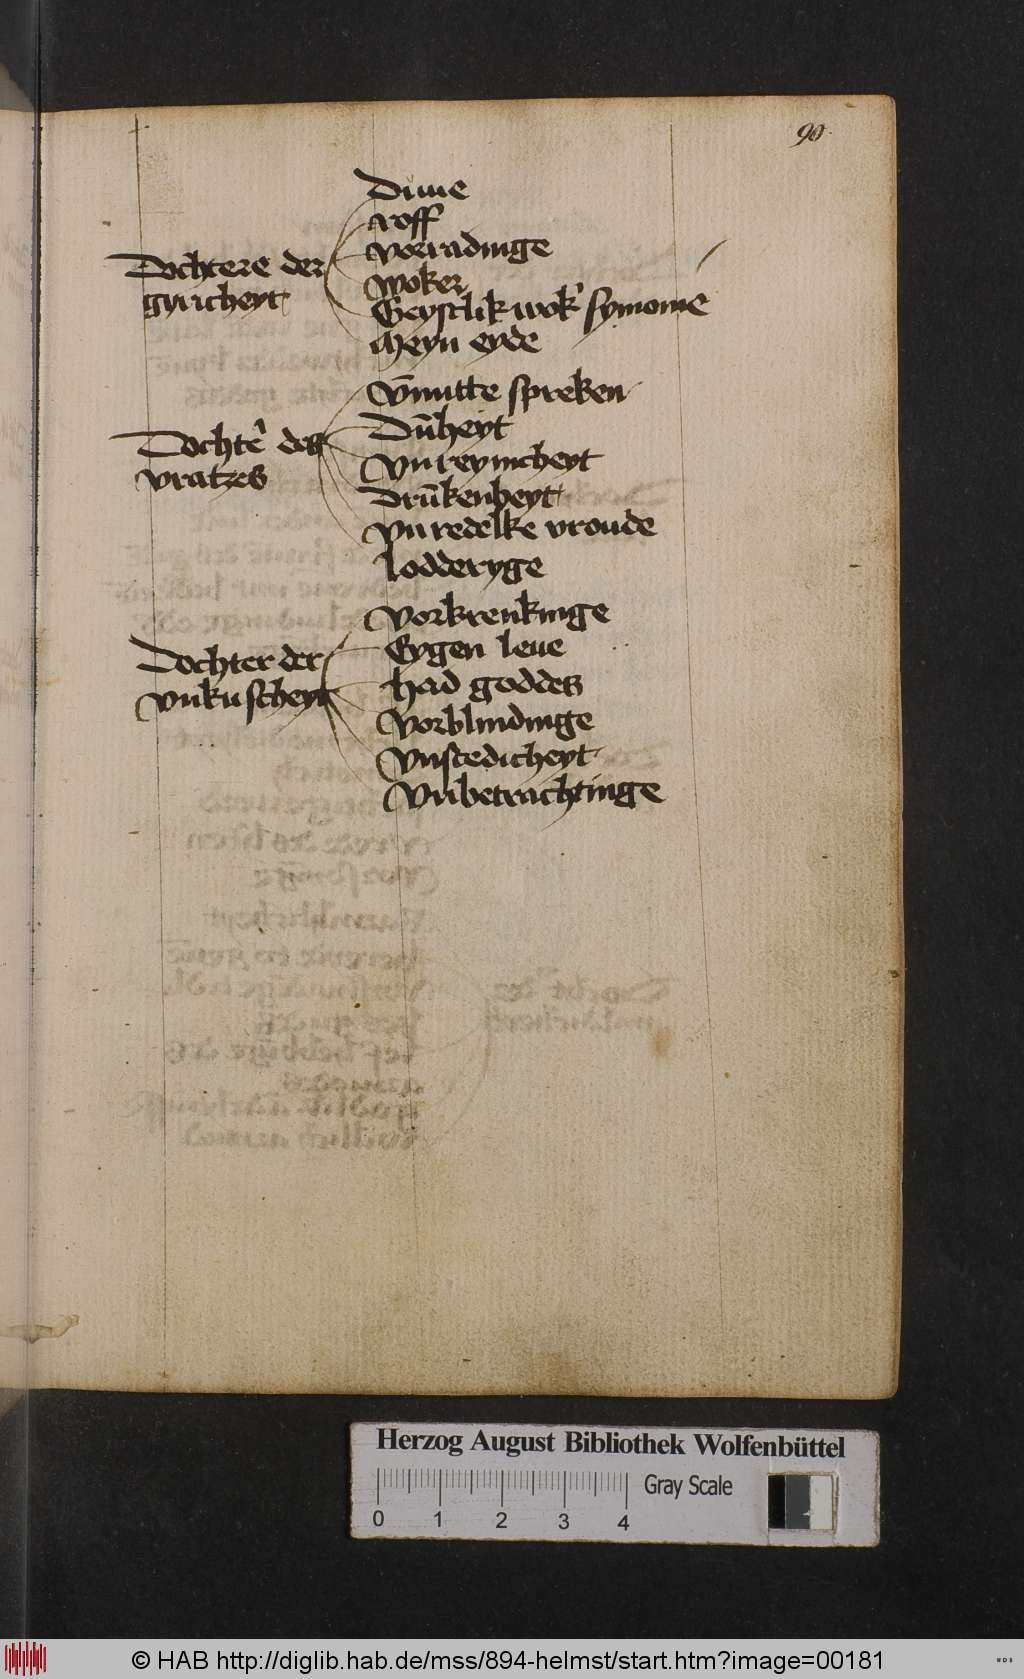 90
Duue
roff
Dochtere der
vorradinge
gyricheyt
woker
Geystlik wok' symonie
Meyn eyde
Vnnutte spreken
Dochte' des
Dūheyt
vratzes
Vnreynicheyt
Drūkenheyt
Vnredelke vroude
lodderyge
Vorkrenkinge
Dochter der
Eygen leue
vnkuscheyt
Had goddes
Vorblindinge
Vnstedicheyt
Vnbetrachtinge
Herzog August Bibliothek Wolfenbüttel
Gray Scale
0 1 2 3 4
© HAB http://diglib.hab.de/mss/894-helmst/start.htm?image=00181